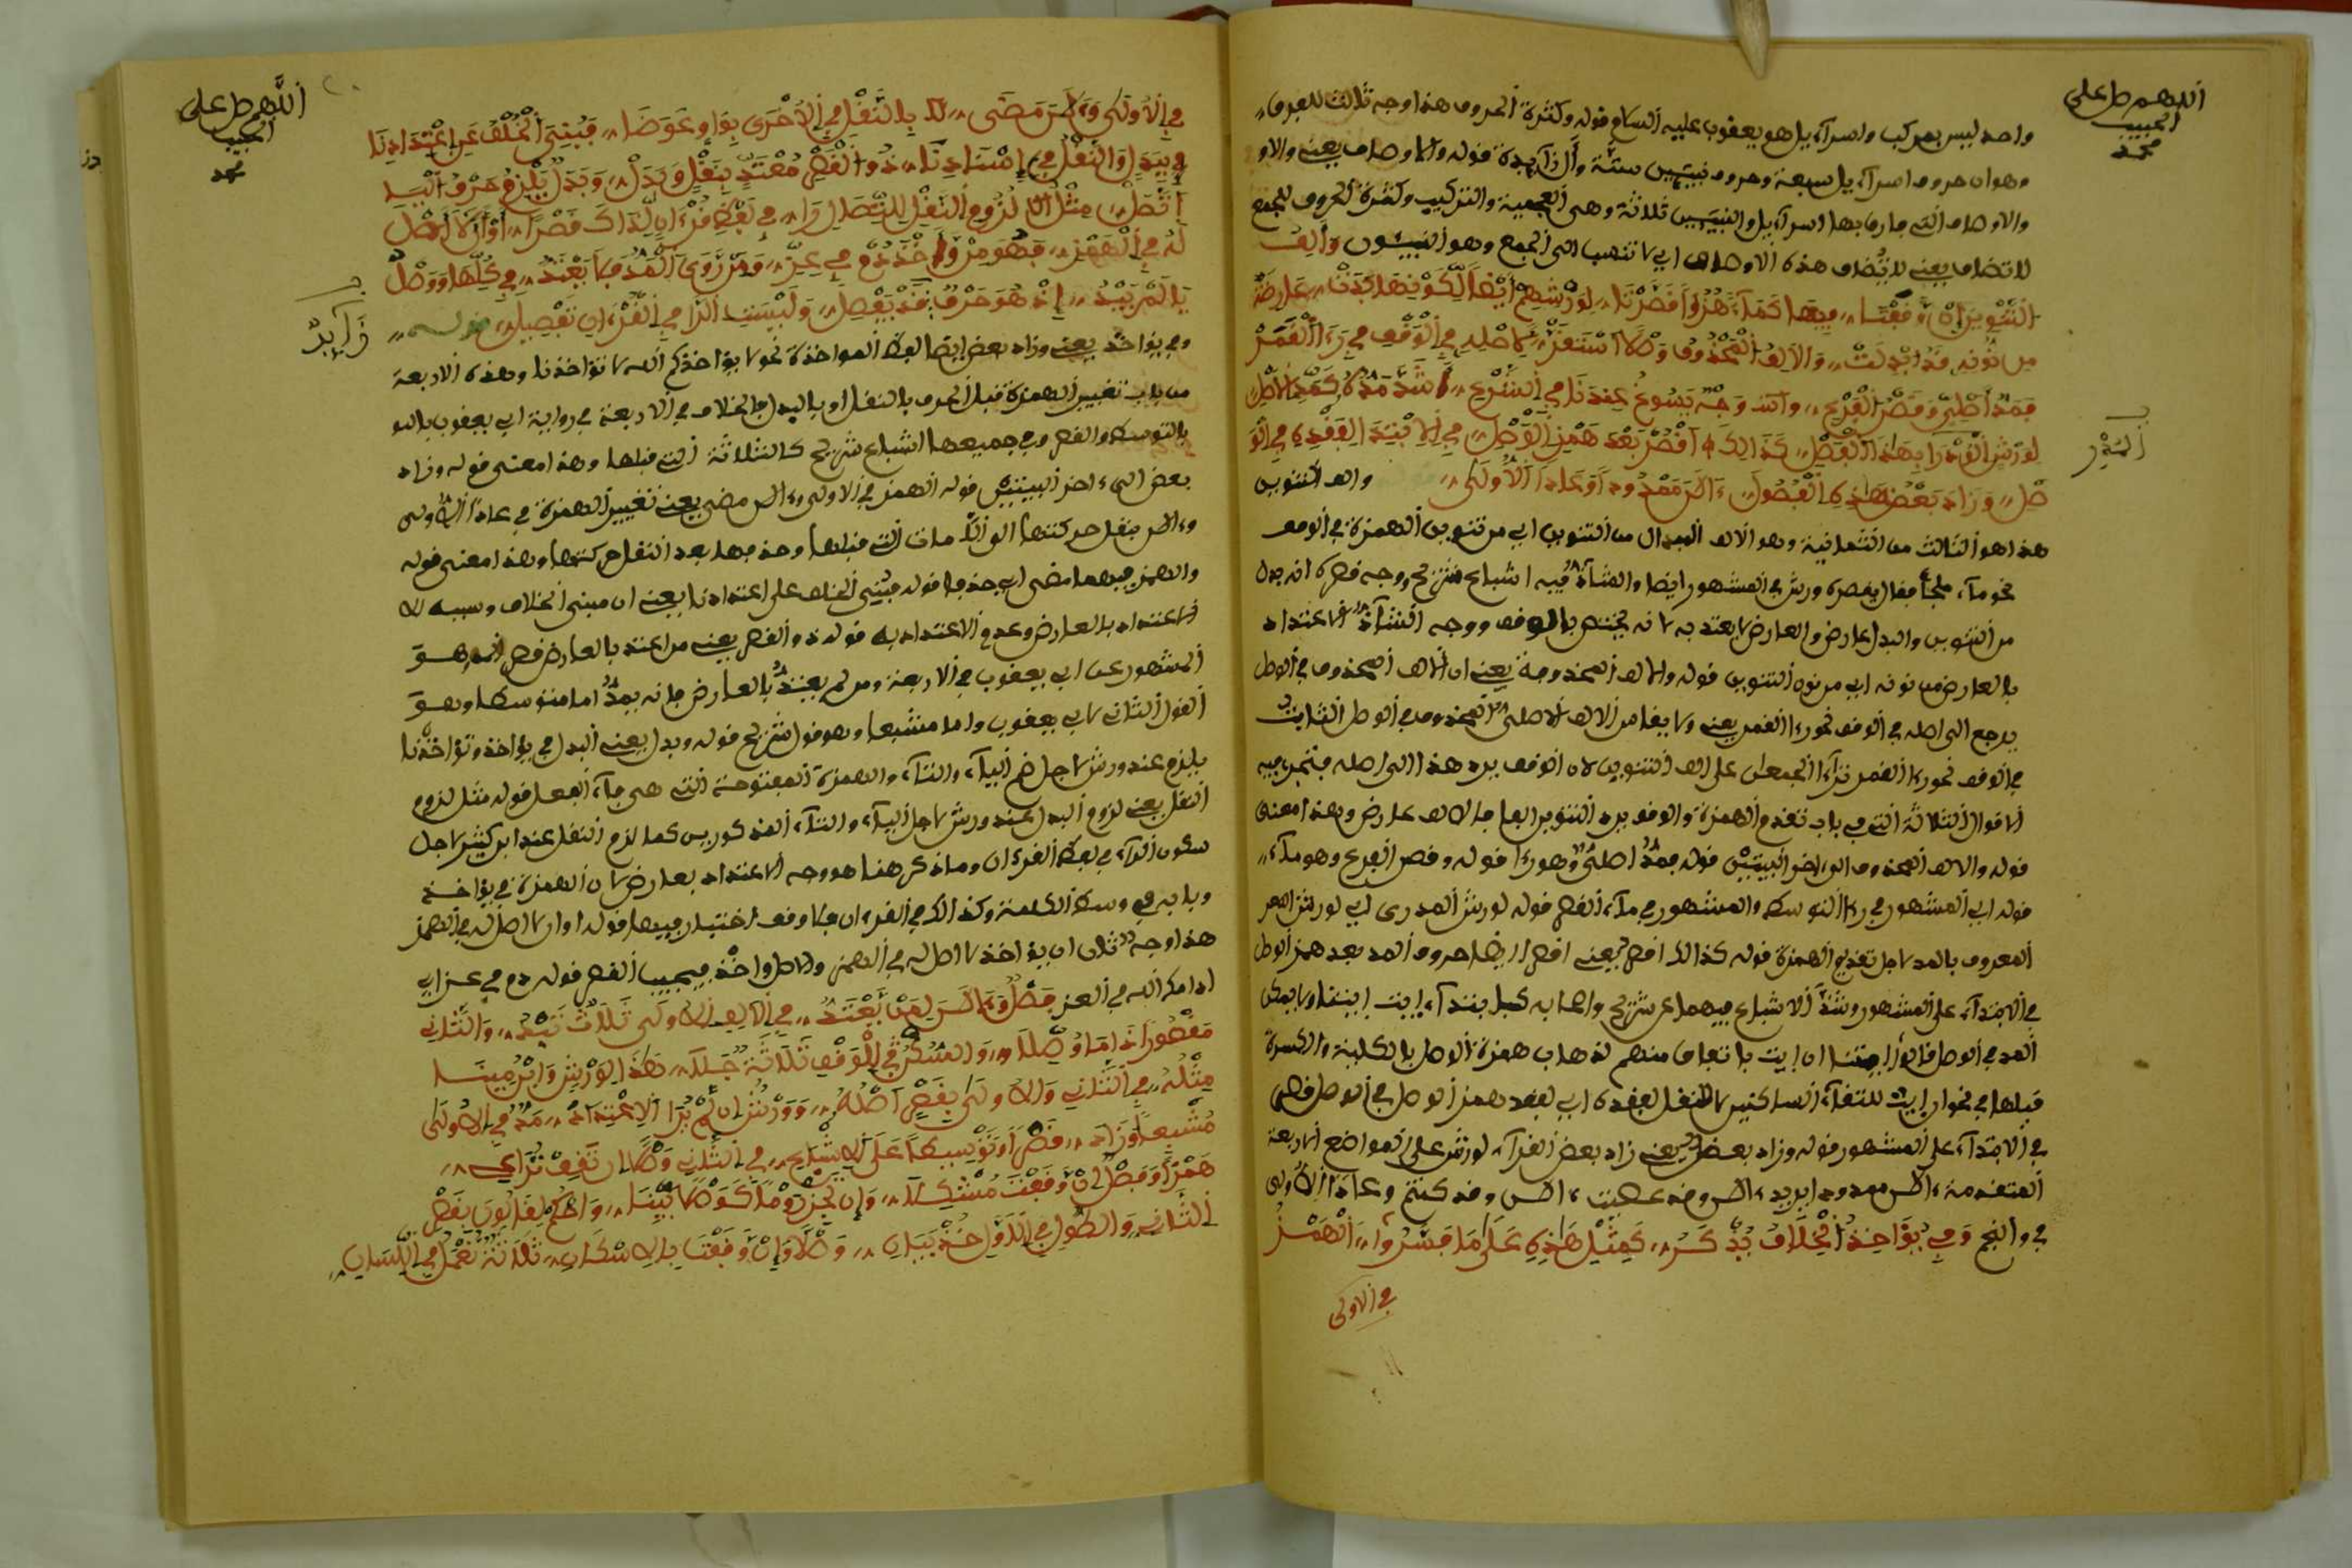 اللهم صل على
الحبيب
محمد
واحد ليس بمركب واسراءيل هو يعقوب عليه السلام قوله وكثرة الحروف هذا وجه ثالث للفرق
وهو ان حروف اسراءيل سبعة وحروف نبيين ستة والزايدة قوله والاوصاف يعنى والاو
والاوصاف التى فارق بها اسراءيل والنبيين ثلاثة وهى العجمية والتركيب وكثرة الحروف للجمع
لا تضاف يعنى لا تضاف هذه الاوصاف اى لا تنسب الى الجمع وهو النبيئون والف
التنوين ان وقفتا فيها كماء هزؤا قصرتا لورشهم ايضا لكونها بدت عارضة
من نونه قد ابدلت والالف المحذوف وصلا استقر لاصله فى الوقف فى رءا القمر
فمد اصلى وقصر الفرع وات وجه يسوغ عندنا فى الشرع شذ مده كمد الاصل
لورش الذ را بهذا الفصل كذلك اقصر بعد همز الوصل فى الابتدا لفقده فى الو
صل وزاد بعض هذه الفصول ءالن معدود او عادا الاولى والف التنوين
هذا هو الثالث من الثمانية وهو الالف المبدل من التنوين اى من تنوين الهمزة فى الوقف
نحو ماء ملجأ فقال يقصره ورش فى المشهور ايضا والشاذ فيه اشباع شريح ووجه قصره انه بدل
من التنوين والبدل عارض والعارض لا يعتد به لانه يختص بالوقف ووجه الشاذ الاعتداد
بالعارض من نونه اى من نون التنوين قوله والالف المحذوفة يعنى ان الالف المحذوف فى الوصل
يرجع الى اصله فى الوقف نحو رءا القمر يعنى ولا يقاس الالف الاصلى المحذوف فى الوصل الثابت
فى الوقف نحو رءا القمر تراءا الجمعان على الف التنوين لان الوقف يرد هذا الى اصله فتجرى فيه
الاقوال الثلاثة التى فى باب تقدم الهمزة والوقف يرد التنوين الفا فالالف عارض وهذا معنى
قوله والالف المحذوف الى ءاخر البيتين قوله فمد اصلى وهو رءا قوله وقصر الفرع وهو ماء
قوله اى المشهور فى رءا التوسط والمشهور فى ماء القصر قوله لورش المدرى اى لورش المصر
المعروف بالمد لاجل تقديم الهمزة قوله كذلك اقصر يعنى اقصر ايضا حروف المد بعد همز الوصل
فى الابتداء على المشهور وشذ الاشباع فيهما عن شريح واصحابه كيل يبتداء ايت ايتنا ولا يمكن
المد فى الوصل قالوا ايتنا ان ايت باتفاق منهم لذهاب همزة الوصل بالكلية والكسرة
قبلها فى نحو ان ايت للتقاء الساكنين لا للنقل لفقده اى لفقد همز الوصل فى الوصل قصر
فى الابتداء على المشهور قوله وزاد بعض يعنى زاد بعض القراء لورش على المواضع الاربعة
المتقدمة ءالن معدود ابريد ءالن وقد عصيت ءالن وقد كنتم وعادا الاولى
فى والنجم وفى يؤاخذ الخلاف يذكر كمثل هذه على ما فسروا الهمز
فى الاولى
المدر
اللهم صل على
الحبيب
محمد
فى الاولى وءالن مضى بالنقل فى الاخرى بواو عوضا فبنى الخلف عن اعتدادنا
فى بدل والنقل فى اسنادنا ذو القصر معتد بنقل وبدل وبدل يلزم حرف اليــ
اتصل مثل لزوم النقل للتصال را فى لفظ قرءان لذاك قصرا او ان لا اصل
له فى الهمز فهو من واخذ دم فى عز ومن روى المد فلا يعتد فى كلها ووصل
يالم يبد اذ هو حرف قد يفصل وليست الرا فى القرءان تفصيل قوله
زايد
وفى يؤاخذ يعنى وزاد بعض ايضا لفظ المواخذة نحو لا يؤاخذكم الله لا تؤاخذنا وهذه الاربعة
من باب تغيير الهمزة قبل الحرف بالنقل او بالبدل فالخلاف فى الاربعة فى رواية ابى يعقوب بالتو
بالتوسط والقصر وفى جميعها اشباع شريح كالثلاثة التى قبلها وهذا معنى قوله وزاد
بعض الى ءاخر البيتين قوله الهمز فى الاولى وءالن مضى يعنى تغيير الهمزة فى عادا الاولى
وءالن بنقل حركتها الى اللامات التى قبلها وحذفها بعد النقل حركتها وهذا معنى قوله
والهمز فيهما مضى اى حذفا قوله فبنى الخلف على اعتدادنا يعنى ان مبنى الخلاف وسببه الا
الاعتداد بالعارض وعدم الاعتداد به قوله ذو القصر يعنى من اعتد بالعارض قصر وهو
المشهور عن ابى يعقوب فى الاربعة ومن لم يعتد بالعارض فانه يمد اما متوسطا وهو
القول الثانى لابى يعقوب واما مشبعا وهو قول شريح قوله وبدل يعنى البدل فى يؤاخذ وتؤاخذنا
يلزم عند ورش لاجل ضم الياء والتاء والهمزة المفتوحة التى هى فاء الفعل قوله مثل لزوم
النقل يعنى لزوم البدل عند ورش لاجل الياء والتاء المذكورين كما لزم النقل عند ابن كثير لاجل
سكون الراء فى لفظ القرءان وما ذكر هنا هو وجه الاعتداد بعارض لان الهمزة فى يؤاخذ
وبابه فى وسط الكلمة وكذلك فى القرءان فلا وقف اختيار فيها قوله او ان لا اصل له فى الهمز
هذا وجه ثان ان يؤاخذ لا اصل له فى الهمز والاصل واخذ فيجب القصر قوله دم فى عز اى
ادامك الله فى العز فصل وءالن لمن يعتد فى الالف الاولى ثلاث تبد والثانى
مقصورا اذا ما وصلا والسكن فى الوقف ثلاثة جلا هذا لورش وابن مينــ
مثله فى الثانى والاولى بقصر اصله وورش ان لم ير الاعتداد مد فى الاولى
مشبعا وزاد قصرا وتوسيطا على الاشباع فى الثانى وصلا ان تقف تراعى
همزا وفصل ان وقفت مشكلا وان تجز يوما كوصلا بينا واحكم لقالون بقصر
الثانى والطول فى اللاول خذ ببيان وصلا وان وقفت بالاسكان ثلاثة تعمل فى اللسان